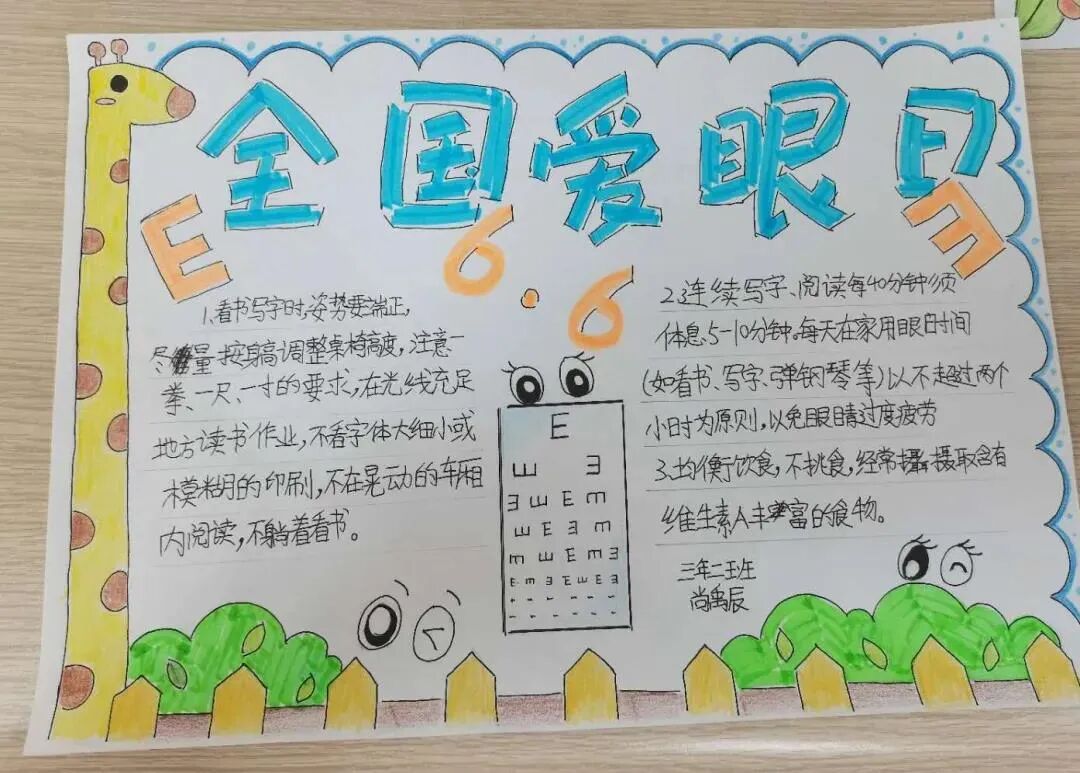 全国爱眼日
E
E
6.6
1.看书写字时,姿势要端正,
尽量按身高调整桌椅高度,注意一
拳、一尺、一寸的要求,在光线充足
地方读书作业,不看字体太细小或
模糊的印刷,不在晃动的车厢
内阅读,不躺着看书。
E
E E
E E E E
E E E E
E E E E E
E E E E E E
2.连续写字、阅读每40分钟须
体息5-10分钟。每天在家用眼时间
(如看书、写字、弹钢琴等)以不超过两个
小时为原则,以免眼睛过度疲劳
3.均衡饮食,不挑食,经常摄取含有
维生素A丰富的食物。
三年二班
尚禹辰